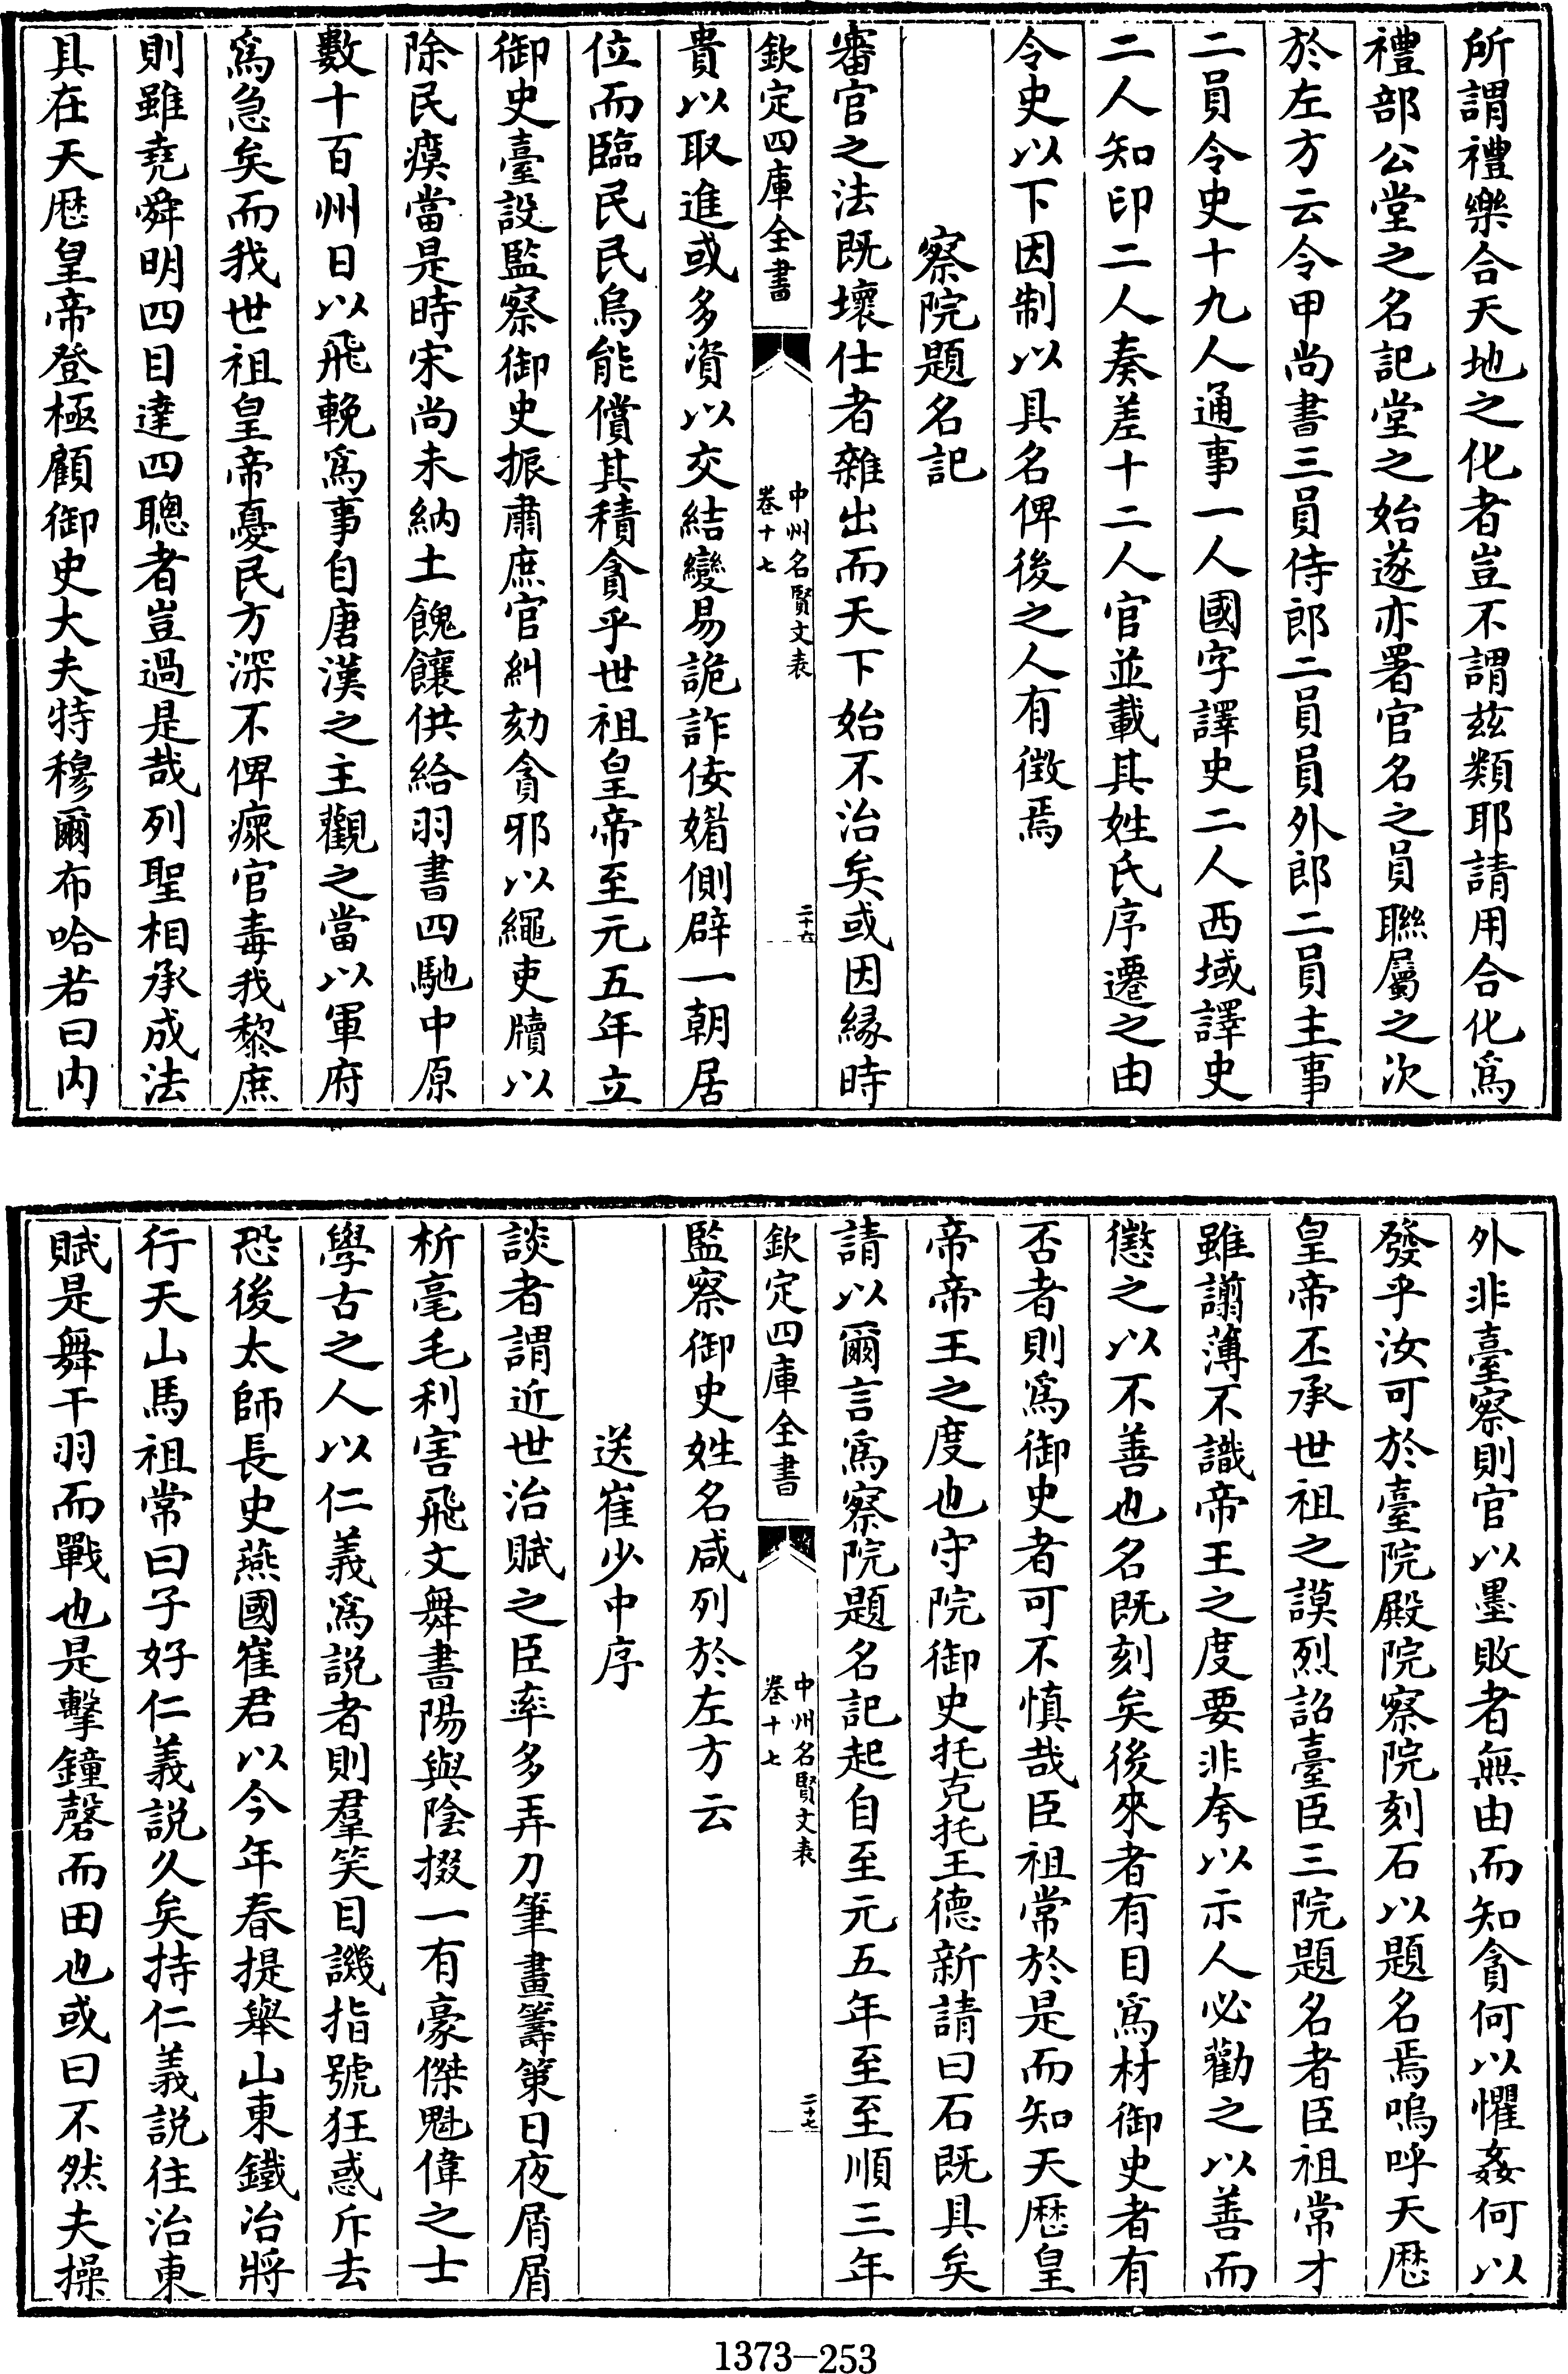 所謂禮樂合天地之化者豈不謂兹類耶請用合化爲
禮部公堂之名記堂之始遂亦署官名之員聯屬之次
於左方云令甲尚書三員侍郎二員員外郎二員主事
二員令史十九人通事一人國字譯史二人西域譯史
二人知印二人奏差十二人官並載其姓氏序遷之由
令史以下因制以具名俾後之人有徴焉
察院題名記
審官之法既壞仕者雜出而天下始不治矣或因緣時
欽定四庫全書
中州名賢文表
卷十七
二十六
貴以取進或多資以交結變易詭詐佞媚側辟一朝居
位而臨民民烏能償其積貪乎世祖皇帝至元五年立
御史臺設監察御史振肅庶官糾劾貪邪以繩吏牘以
除民瘼當是時宋尚未納土餽饟供給羽書四馳中原
數十百州日以飛輓爲事自唐漢之主觀之當以軍府
爲急矣而我世祖皇帝憂民方深不俾瘝官毒我黎庶
則雖堯舜明四目達四聰者豈過是哉列聖相承成法
具在天厯皇帝登極顧御史大夫特穆爾布哈若曰内
外非臺察則官以墨敗者無由而知貪何以懼姦何以
發乎汝可於臺院殿院察院刻石以題名焉嗚呼天厯
皇帝丕承世祖之謨烈詔臺臣三院題名者臣祖常才
雖謭薄不識帝王之度要非夸以示人必勸之以善而
懲之以不善也名既刻矣後來者有目爲材御史者有
否者則爲御史者可不慎哉臣祖常於是而知天厯皇
帝帝王之度也守院御史托克托王德新請曰石既具矣
請以爾言爲察院題名記起自至元五年至至順三年
欽定四庫全書
中州名賢文表
卷十七
二十七
監察御史姓名咸列於左方云
送崔少中序
談者謂近世治賦之臣率多弄刀筆畫籌策日夜屑屑
析毫毛利害飛文舞書陽與陰掇一有豪傑魁偉之士
學古之人以仁義爲説者則羣笑目譏指號狂惑斥去
恐後太師長史燕國崔君以今年春提舉山東鐵冶將
行天山馬祖常曰子好仁義説久矣持仁義説往治東
賦是舞干羽而戰也是擊鐘磬而田也或曰不然夫操
1373—253